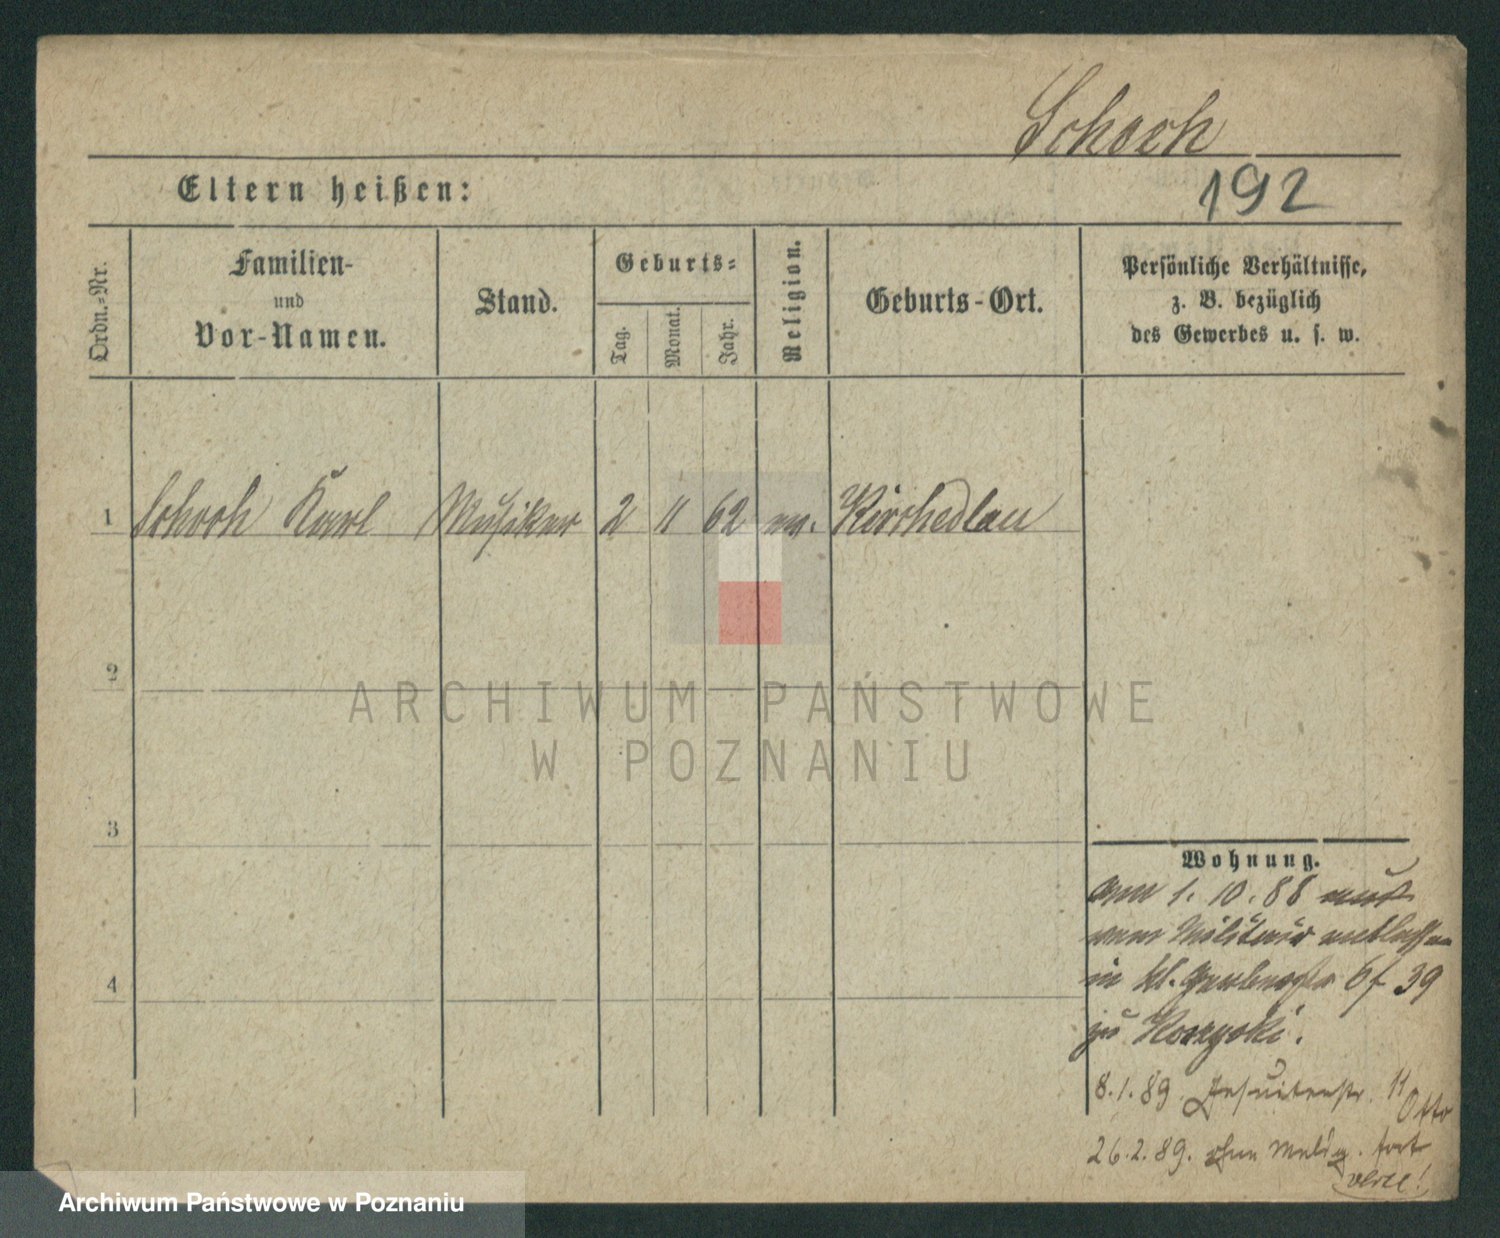 Schoch
192
Eltern heißen:
Ordn.-Nr.
Familien-
und
Vor-Namen.
Stand.
Geburts-
Tag.
Monat.
Jahr.
Religion.
Geburts-Ort.
Persönliche Verhältnisse,
z. B. bezüglich
des Gewerbes u. s. w.
1 Schoch Karl Musiker 2 11 62 ev. Kirchedlau
2
3
4
Wohnung.
am 1. 10. 88
vom Militair entlassen
in kl. Gerberstr 6 f 39
zu Koszycki.
8.1.89. Jesuitenstr. 11
Otto
26.2.89. ohne Meldg. fort
ARCHIWUM PAŃSTWOWE
W POZNANIU
Archiwum Państwowe w Poznaniu